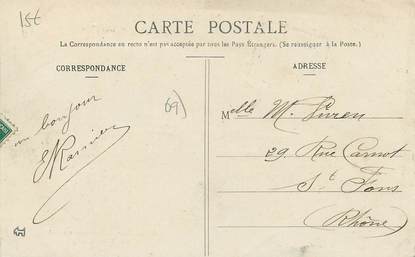 15€
CARTE POSTALE
La Correspondance au recto n'est pas acceptée par tous les Pays Étrangers. (Se renseigner à la Poste.)
CORRESPONDANCE
ADRESSE
69)
un bonjour
Melle M.
29. Rue Carnot
St Fons
(Rhône)